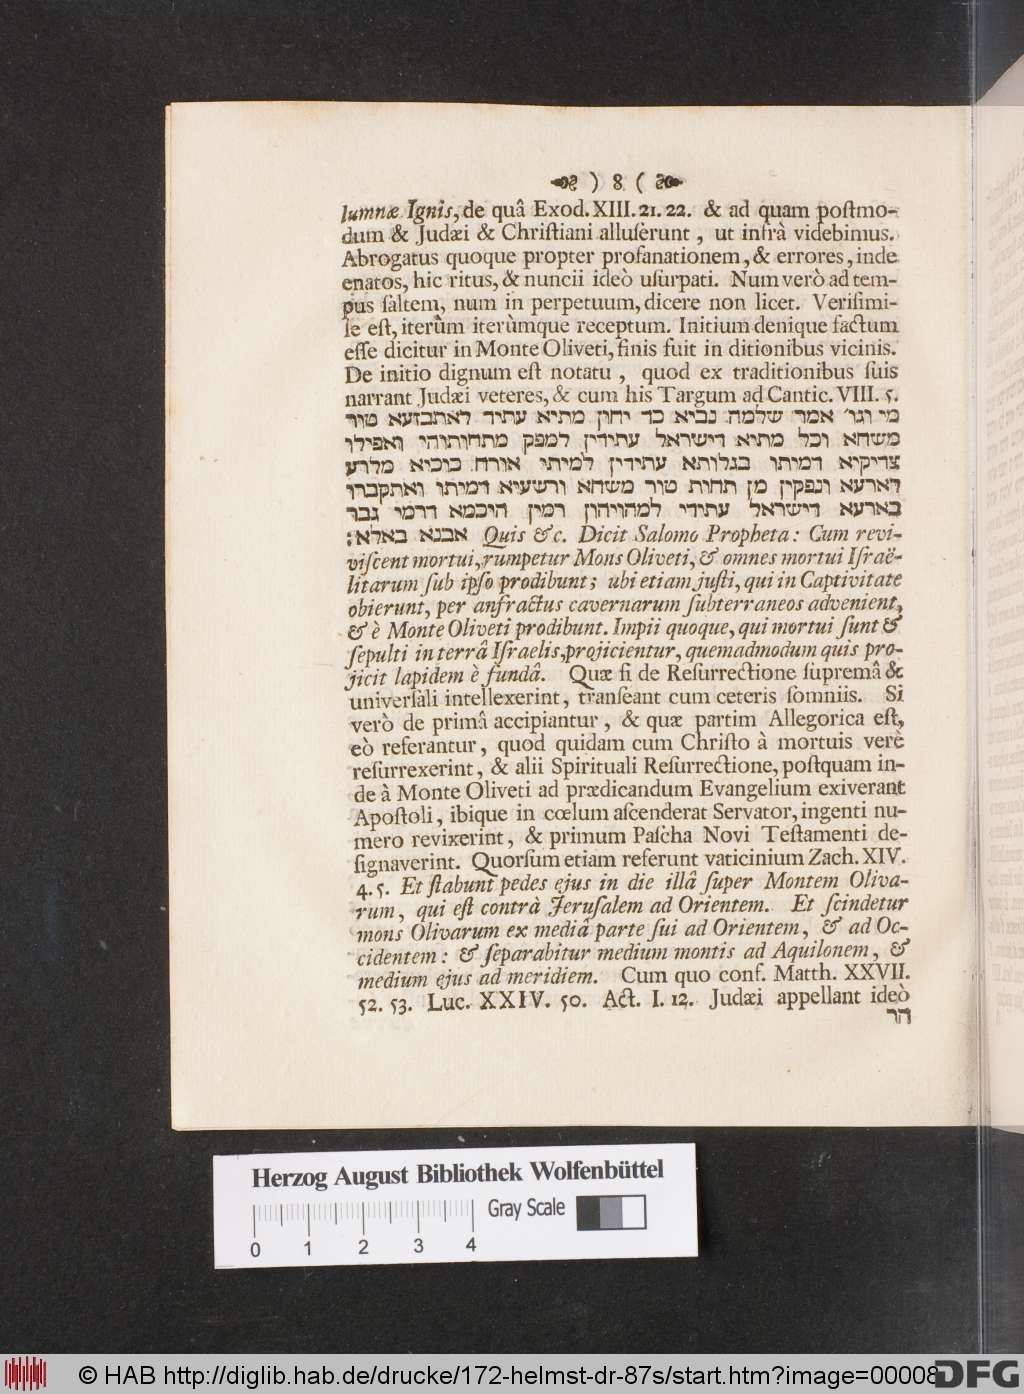 ) 8 (
lumnæ Ignis, de quâ Exod. XIII. 21. 22. & ad quam postmo-
dum & Judæi & Christiani alluserunt, ut infrà videbimus.
Abrogatus quoque propter profanationem, & errores, inde
enatos, hic ritus, & nuncii ideò usurpati. Num verò ad tem-
pus saltem, num in perpetuum, dicere non licet. Verisimi-
le est, iterùm iterùmque receptum. Initium denique factum
esse dicitur in Monte Oliveti, finis fuit in ditionibus vicinis.
De initio dignum est notatu, quod ex traditionibus suis
narrant Judæi veteres, & cum his Targum ad Cantic. VIII. 5.
מי וגו׳ אמר שלמה נביא כד יחון מתיא עתיד לאתבזעא טור
משחא וכל מתיא דישראל עתידין למפק מתחותוהי ואפילו
צדיקיא דמיתו בגלותא עתידין למיתי אורח כוכיא מלרע
דארעא ונפקין מן תחות טור משחא ורשעיא דמיתו ואתקברו
בארעא דישראל עתידי למהויהון רמין היכמא דרמי גבר
אבנא באלא: Quis &c. Dicit Salomo Propheta: Cum revi-
viscent mortui, rumpetur Mons Oliveti, & omnes mortui Israë-
litarum sub ipso prodibunt; ubi etiam justi, qui in Captivitate
obierunt, per anfractus cavernarum subterraneos advenient,
& è Monte Oliveti prodibunt. Impii quoque, qui mortui sunt &
sepulti in terrâ Israelis, projicientur, quemadmodum quis pro-
jicit lapidem è fundâ. Quæ si de Resurrectione supremâ &
universali intellexerint, transeant cum ceteris somniis. Si
verò de primâ accipiantur, & quæ partim Allegorica est,
eò referantur, quod quidam cum Christo à mortuis verè
resurrexerint, & alii Spirituali Resurrectione, postquam in-
de à Monte Oliveti ad prædicandum Evangelium exiverant
Apostoli, ibique in cœlum ascenderat Servator, ingenti nu-
mero revixerint, & primum Pascha Novi Testamenti de-
signaverint. Quorsum etiam referunt vaticinium Zach. XIV.
4. 5. Et stabunt pedes ejus in die illâ super Montem Oliva-
rum, qui est contrà Jerusalem ad Orientem. Et scindetur
mons Olivarum ex mediâ parte sui ad Orientem, & ad Oc-
cidentem: & separabitur medium montis ad Aquilonem, &
medium ejus ad meridiem. Cum quo conf. Matth. XXVII.
52. 53. Luc. XXIV. 50. Act. I. 12. Judæi appellant ideò
הר
Herzog August Bibliothek Wolfenbüttel
Gray Scale
0 1 2 3 4
© HAB http://diglib.hab.de/drucke/172-helmst-dr-87s/start.htm?image=00008
DFG